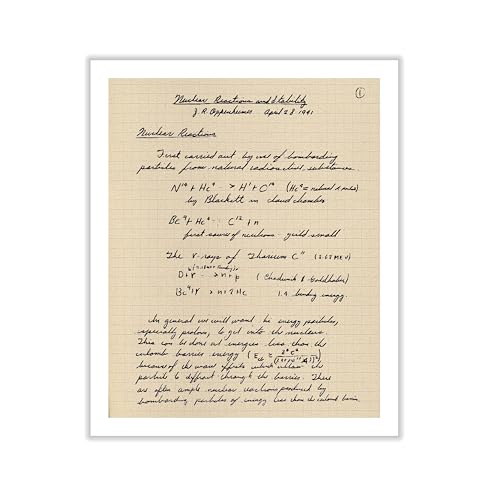 ①
Nuclear Reactions and Stability
J. R. Oppenheimer April 28 1941
Nuclear Reactions
First carried out by use of bombarding
particles from natural radioactive substances.
N¹⁴ + He⁴ → H¹ +
by Blackett in cloud chamber
Be⁹ + He⁴ → C¹² + n
first source of neutrons - yield small
The γ-rays of Thorium C" (2.62 MEV)
D + γ → n + p (Chadwick & Goldhaber)
Be⁹ + γ → n + 2He 1.4 binding energy.
In general we will want the energy particles,
especially protons, to get into the nucleus.
This can be done at energies less than the
coulomb barrier energy
because of the wave effects which allow the
particle to diffract through the barrier. There
are often ample nuclear reactions produced by
bombarding particles of energy less than the coulomb barrier.